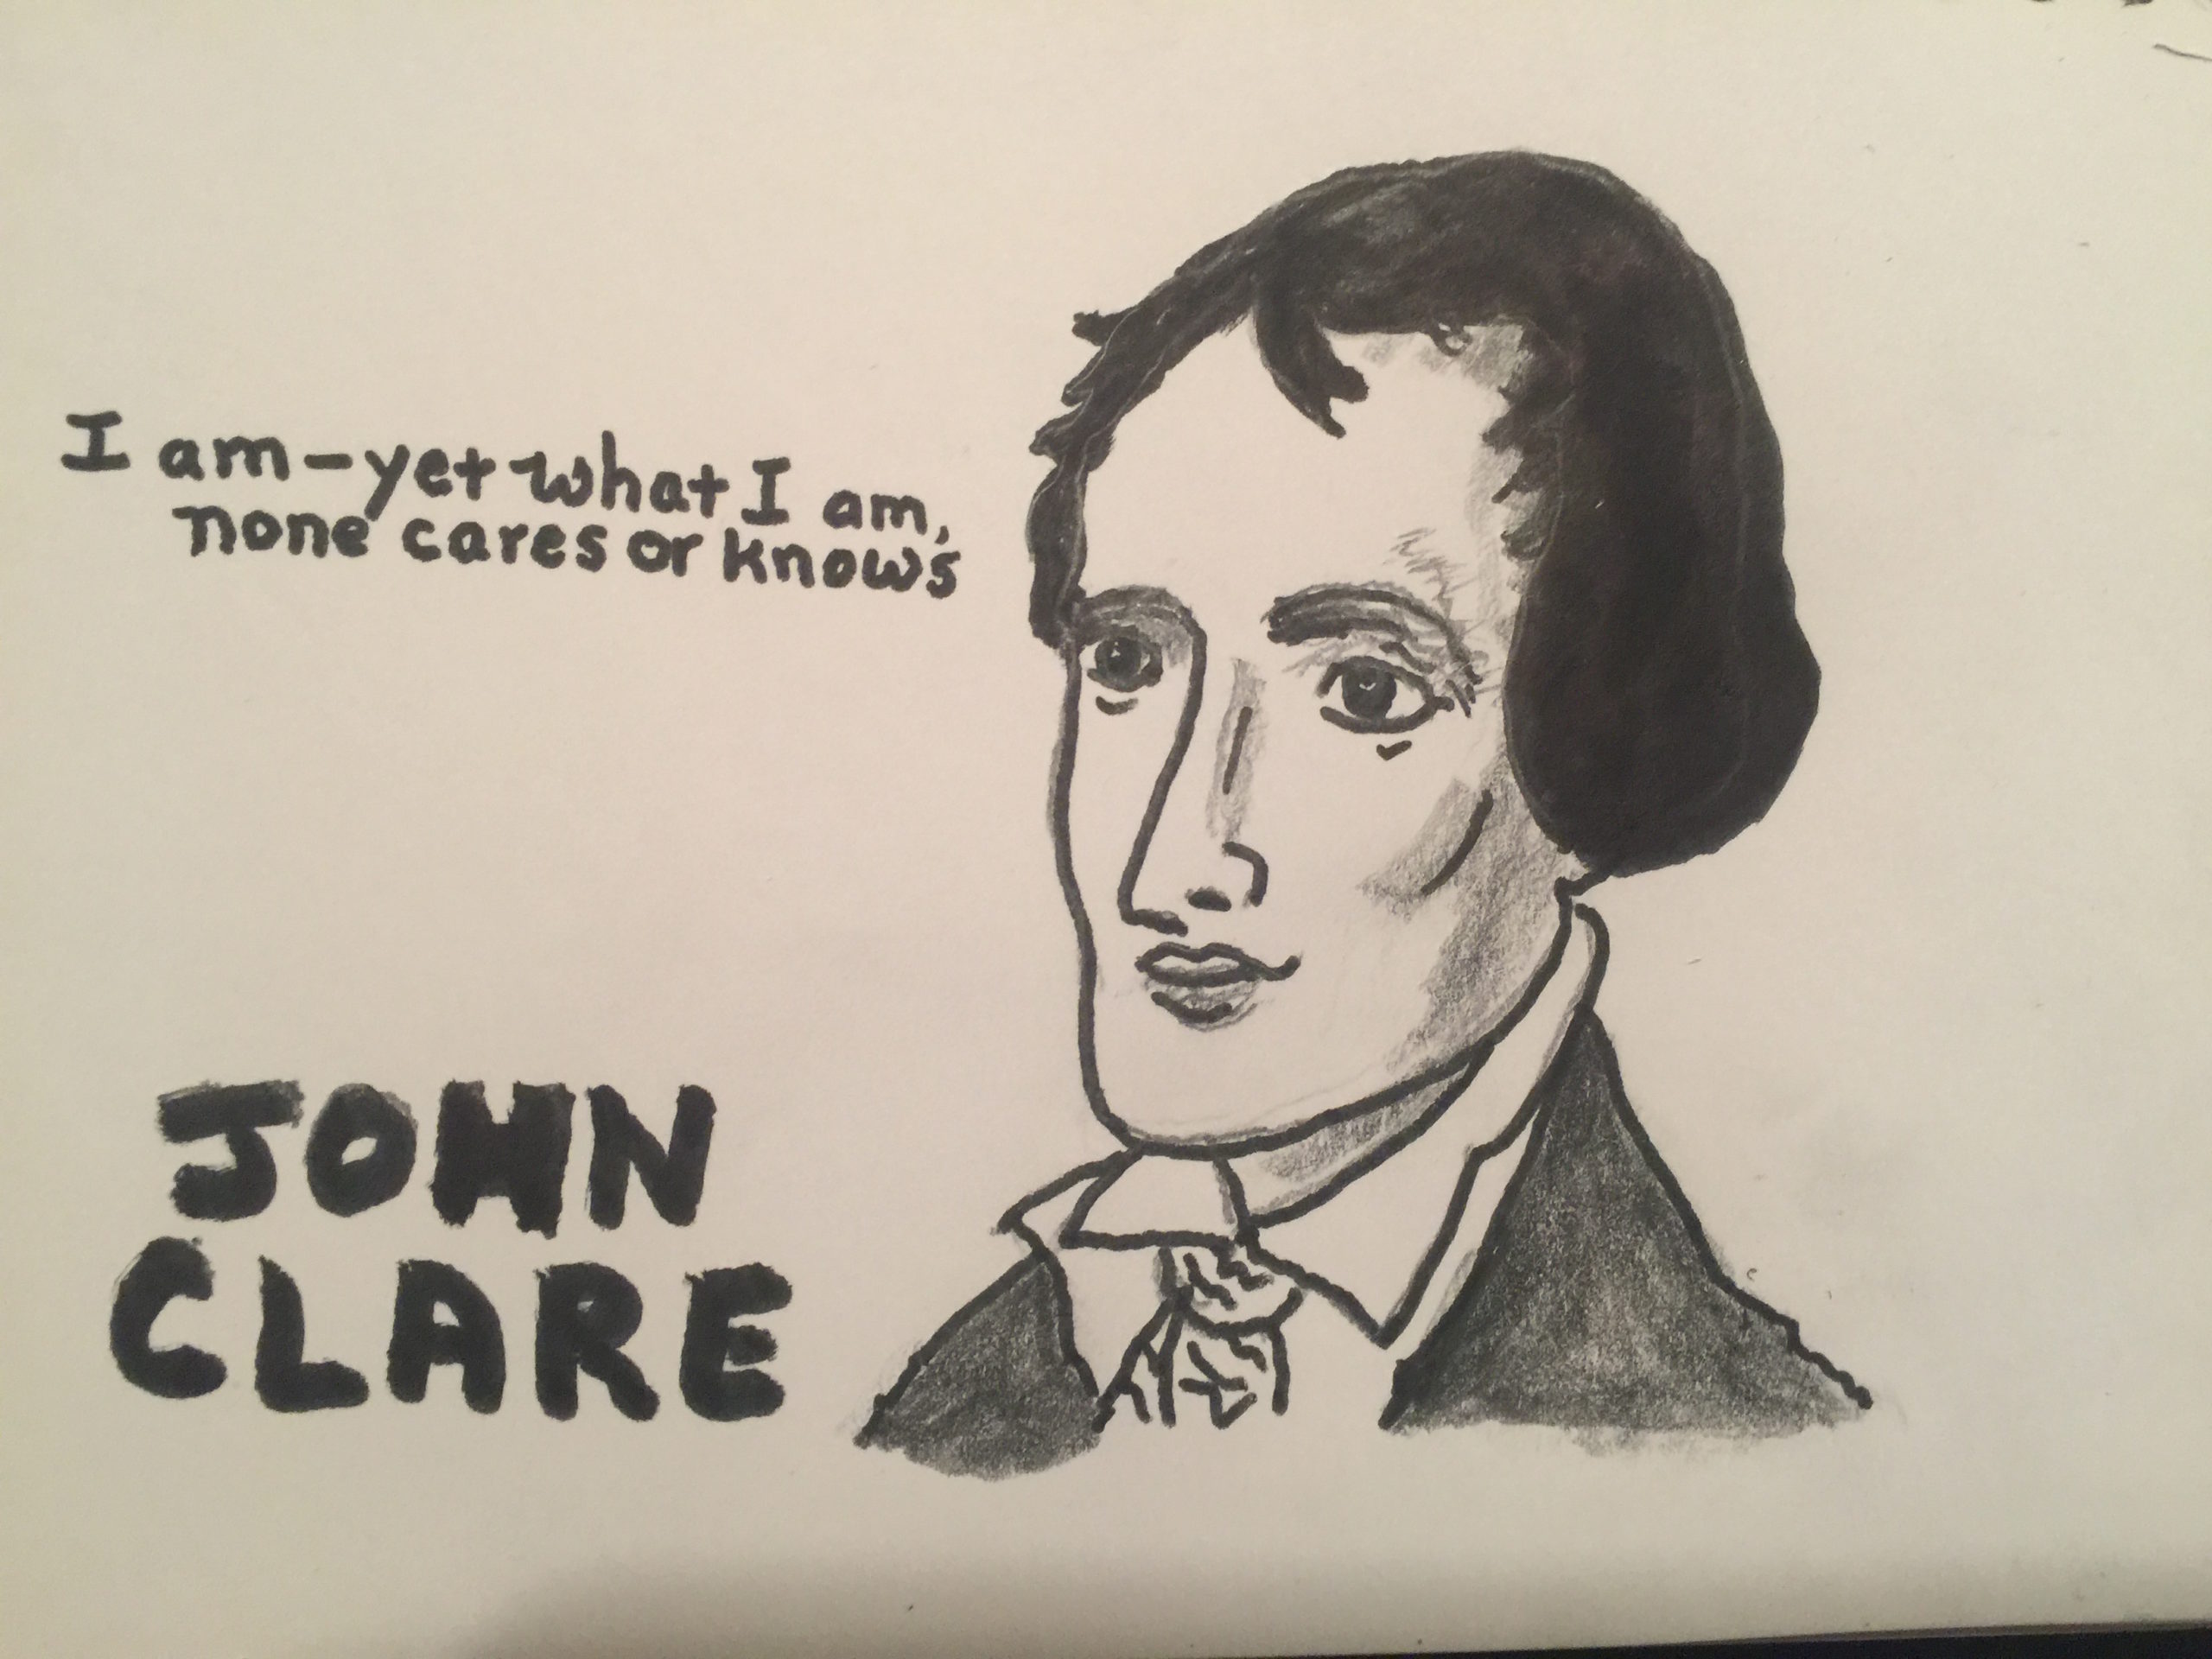 I am–yet what I am,
none cares or knows
JOHN
CLARE